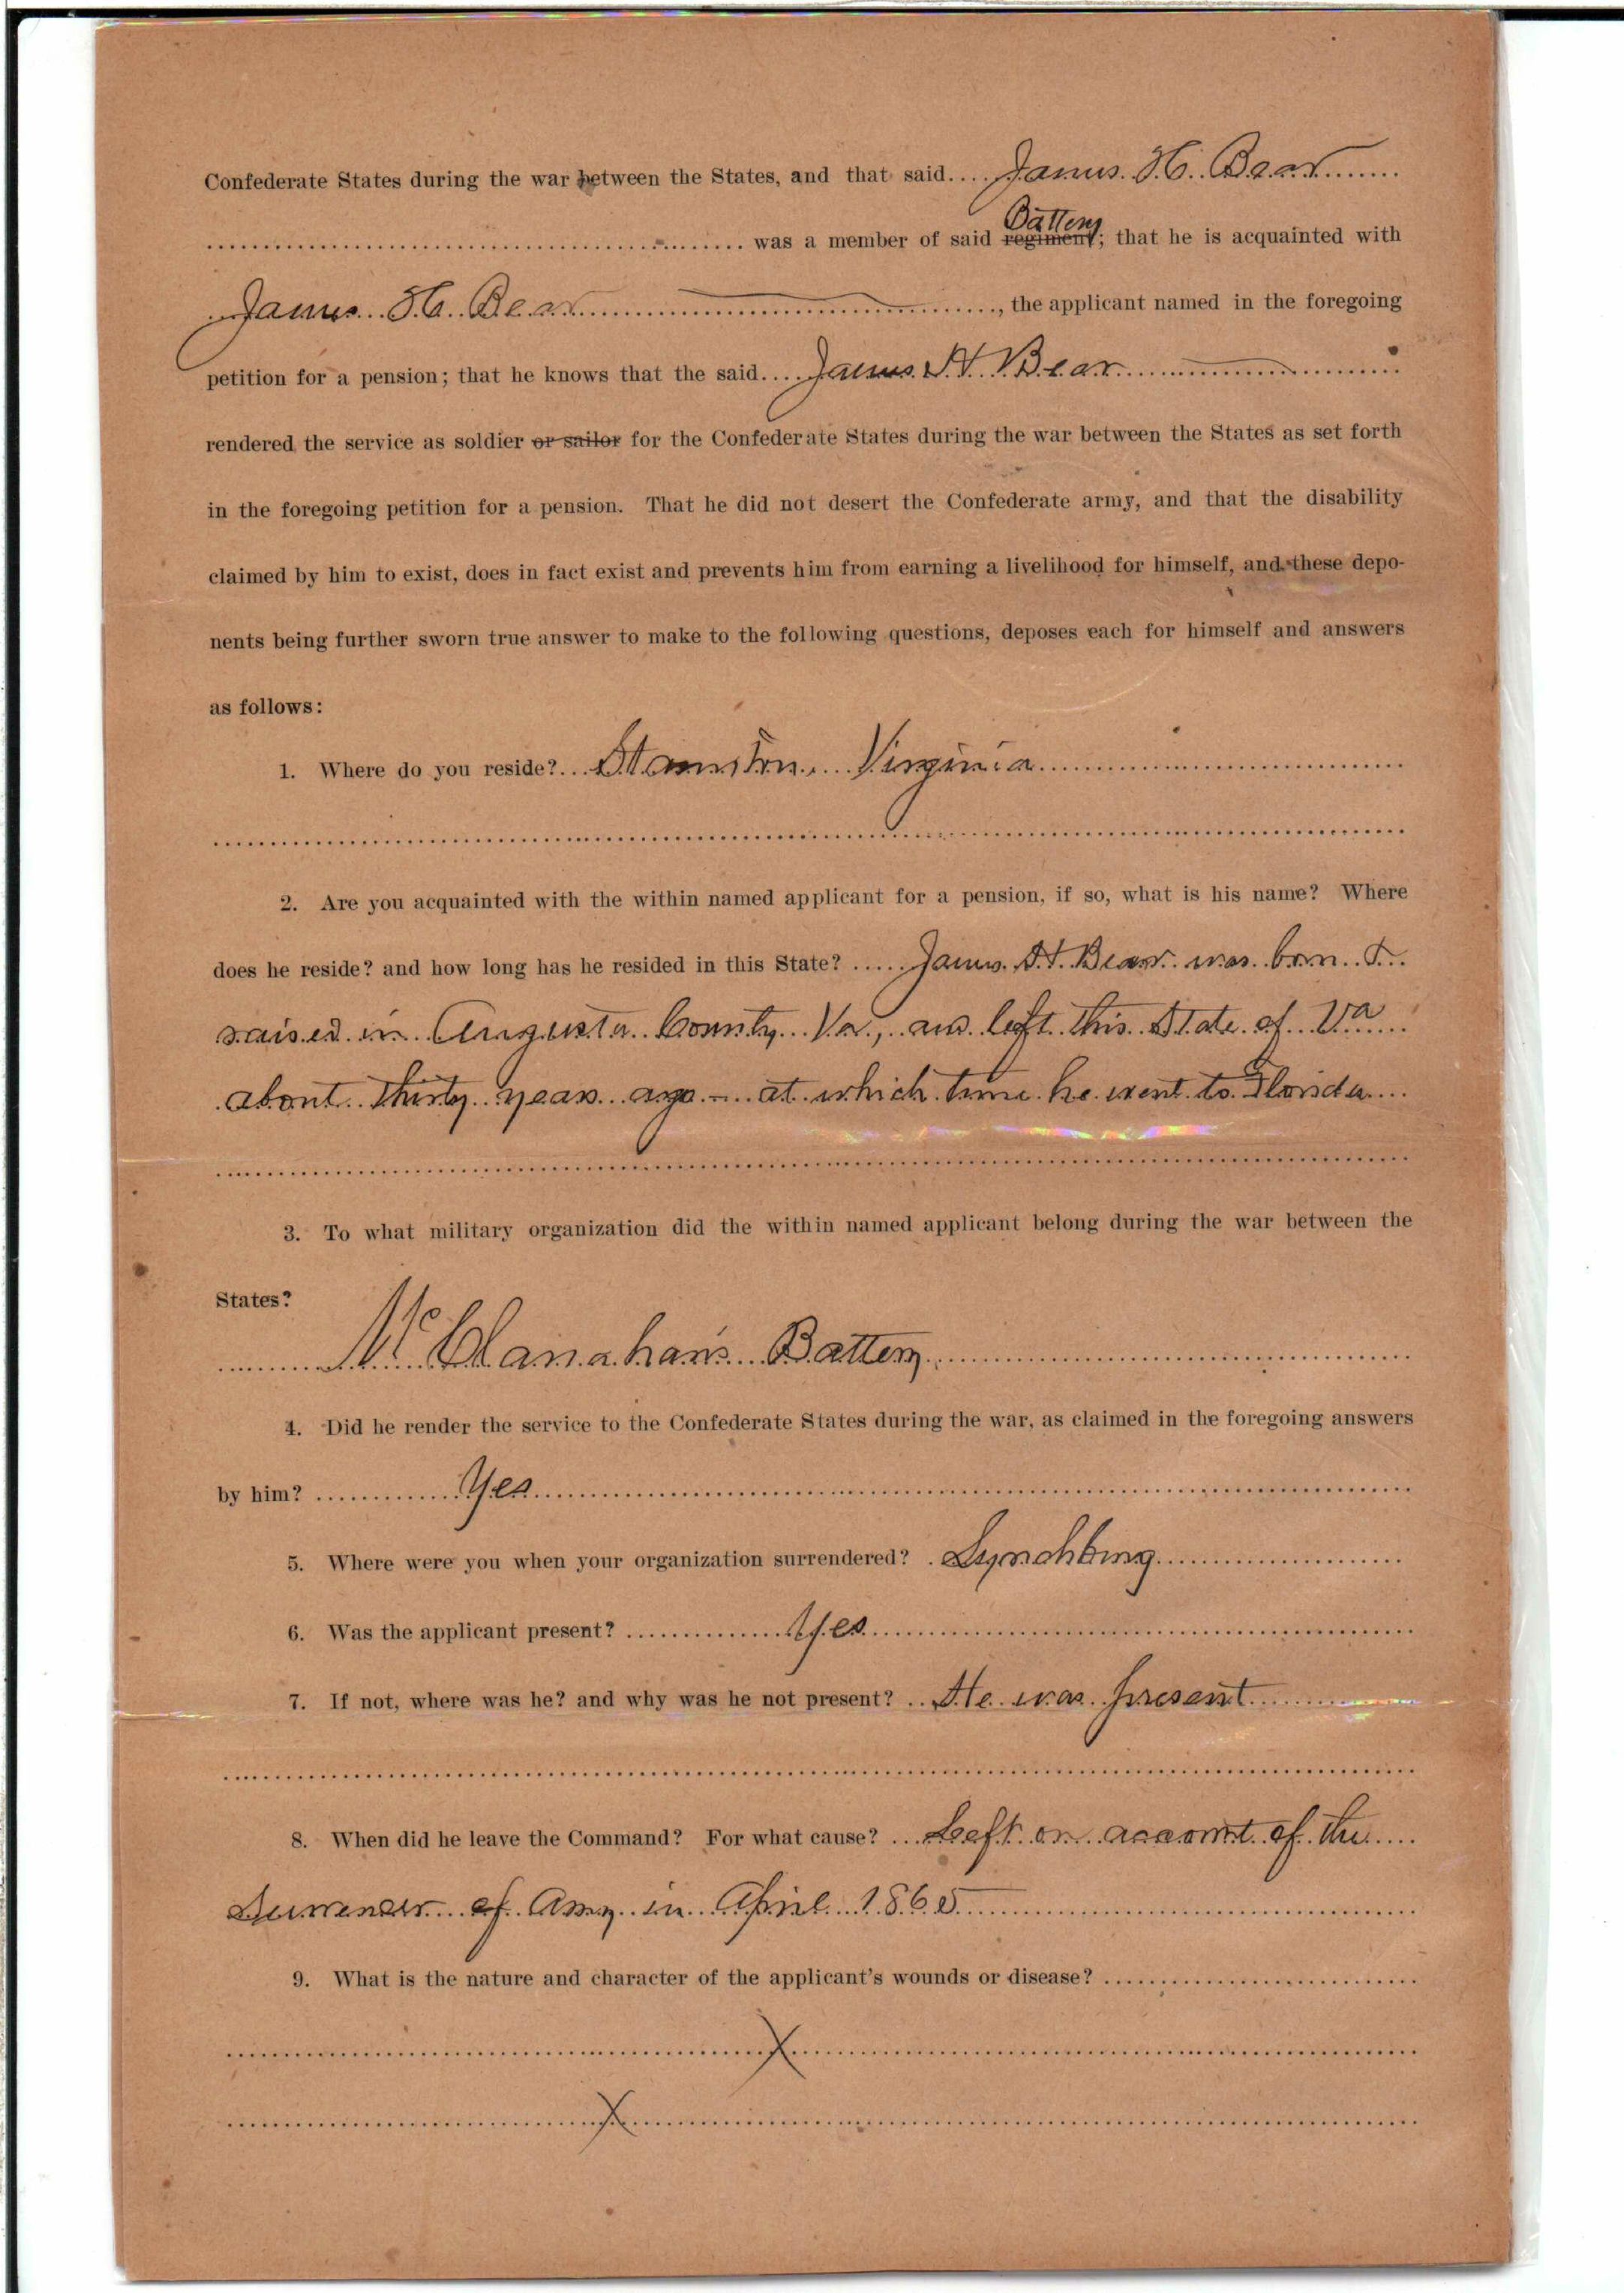 Confederate States during the war between the States, and that said.... James H. Bear
was a member of said regiment Battery; that he is acquainted with
James H. Bear, the applicant named in the foregoing
petition for a pension; that he knows that the said.... James H. Bear
rendered the service as soldier or sailor for the Confederate States during the war between the States as set forth
in the foregoing petition for a pension. That he did not desert the Confederate army, and that the disability
claimed by him to exist, does in fact exist and prevents him from earning a livelihood for himself, and these depo-
nents being further sworn true answer to make to the following questions, deposes each for himself and answers
as follows:
1. Where do you reside? Staunton, Virginia
2. Are you acquainted with the within named applicant for a pension, if so, what is his name? Where
does he reside? and how long has he resided in this State? James H. Bear was born &
raised in Augusta County Va, and left this State of Va
about thirty years ago - at which time he went to Florida
3. To what military organization did the within named applicant belong during the war between the
States?
McClanahan's Battery
4. Did he render the service to the Confederate States during the war, as claimed in the foregoing answers
by him? Yes
5. Where were you when your organization surrendered? Lynchburg
6. Was the applicant present? Yes
7. If not, where was he? and why was he not present? He was present
8. When did he leave the Command? For what cause? Left on account of the
Surrender of Army in April 1865
9. What is the nature and character of the applicant's wounds or disease?
X
X